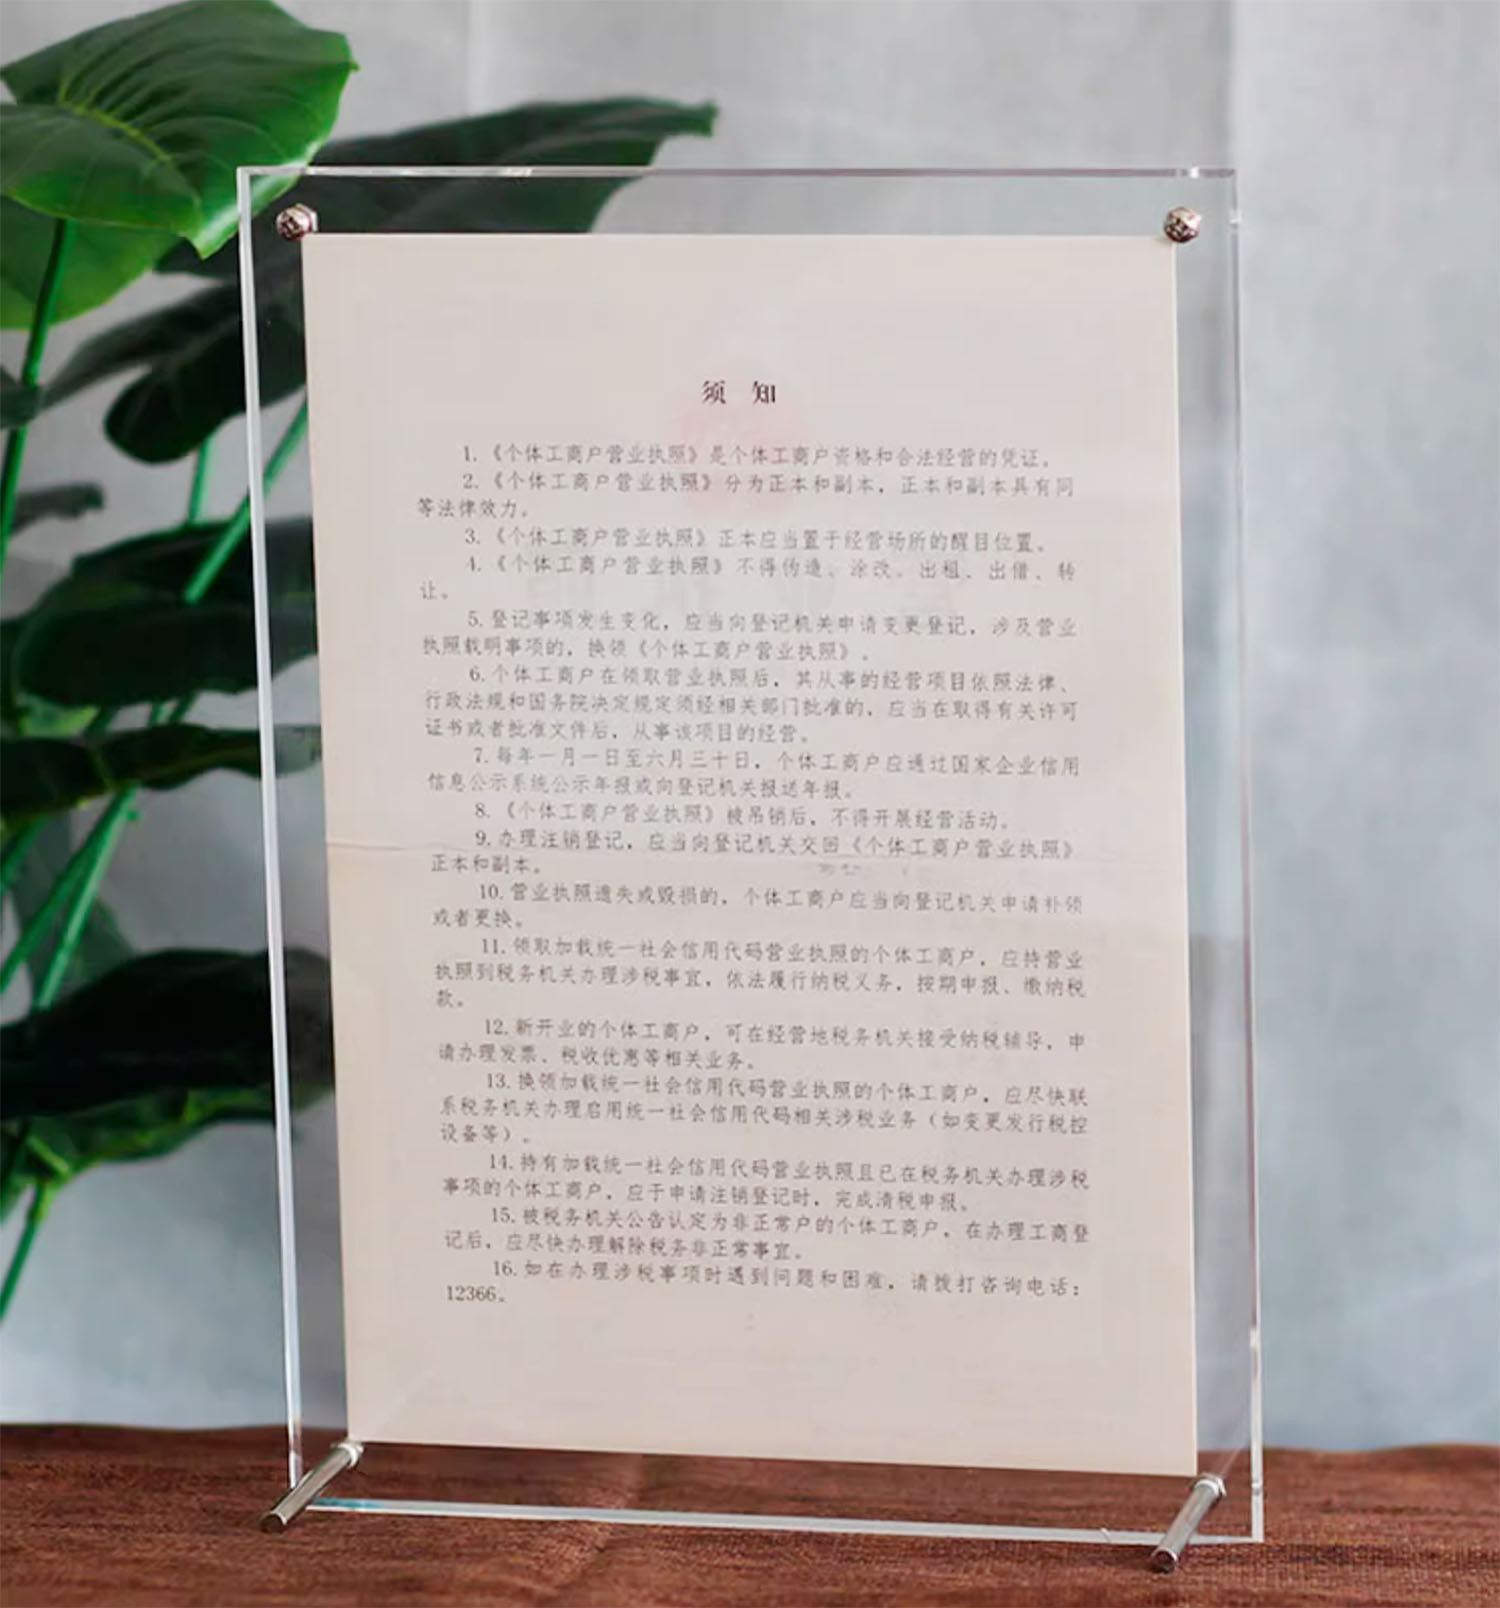 须 知
1.《个体工商户营业执照》是个体工商户资格和合法经营的凭证。
2.《个体工商户营业执照》分为正本和副本，正本和副本具有同
等法律效力。
3.《个体工商户营业执照》正本应当置于经营场所的醒目位置。
4.《个体工商户营业执照》不得伪造、涂改、出租、出借、转
让。
5.登记事项发生变化，应当向登记机关申请变更登记，涉及营业
执照载明事项的，换领《个体工商户营业执照》。
6.个体工商户在领取营业执照后，其从事的经营项目依照法律、
行政法规和国务院决定规定须经相关部门批准的，应当在取得有关许可
证书或者批准文件后，从事该项目的经营。
7.每年一月一日至六月三十日，个体工商户应通过国家企业信用
信息公示系统公示年报或向登记机关报送年报。
8.《个体工商户营业执照》被吊销后，不得开展经营活动。
9.办理注销登记，应当向登记机关交回《个体工商户营业执照》
正本和副本。
10.营业执照遗失或毁损的，个体工商户应当向登记机关申请补领
或者更换。
11.领取加载统一社会信用代码营业执照的个体工商户，应持营业
执照到税务机关办理涉税事宜，依法履行纳税义务，按期申报、缴纳税
款。
12.新开业的个体工商户，可在经营地税务机关接受纳税辅导，申
请办理发票、税收优惠等相关业务。
13.换领加载统一社会信用代码营业执照的个体工商户，应尽快联
系税务机关办理启用统一社会信用代码相关涉税业务（如变更发行税控
设备等）。
14.持有加载统一社会信用代码营业执照且已在税务机关办理涉税
事项的个体工商户，应于申请注销登记时，完成清税申报。
15.被税务机关公告认定为非正常户的个体工商户，在办理工商登
记后，应尽快办理解除税务非正常事宜。
16.如在办理涉税事项时遇到问题和困难，请拨打咨询电话：
12366。